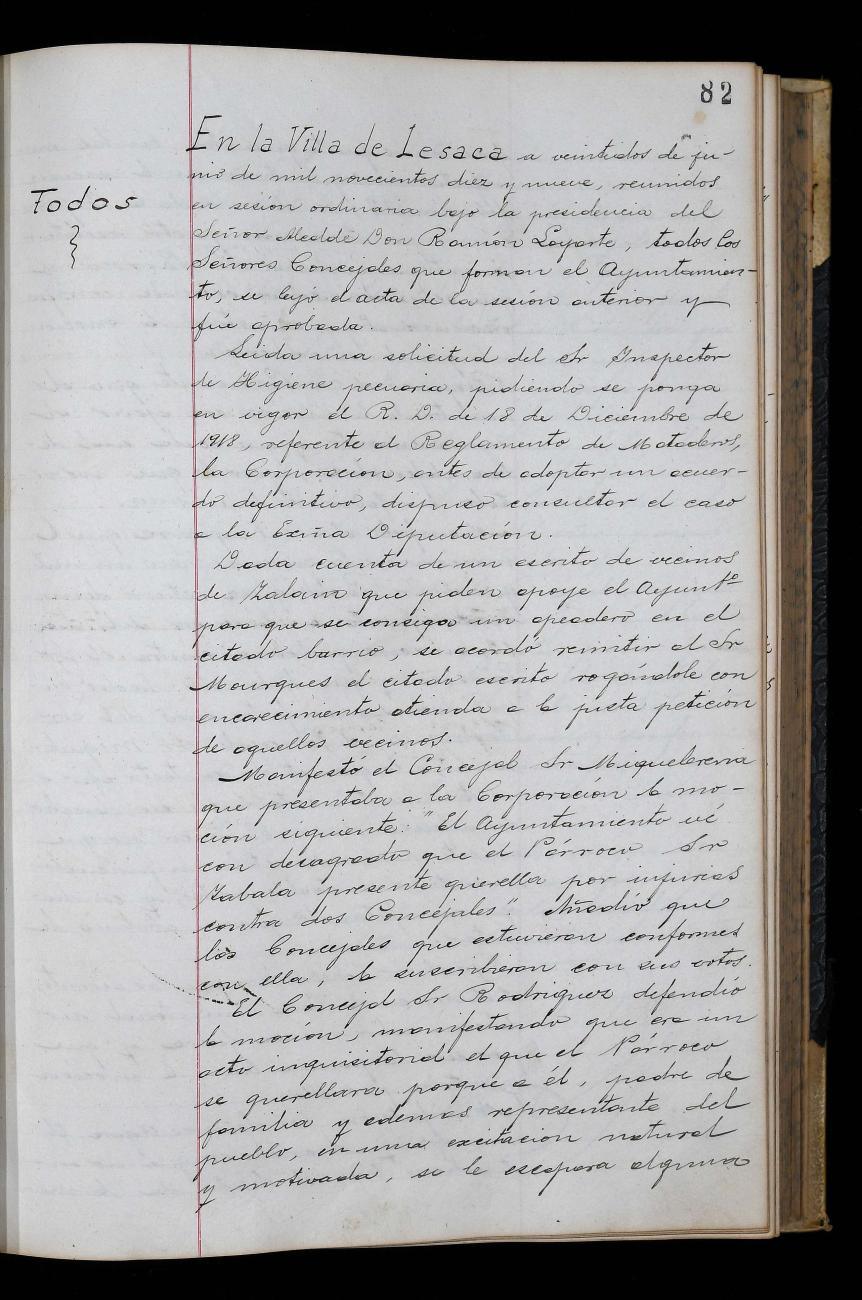 82
En la Villa de Lesaca a veintidos de ju-
Todos
nio de mil novecientos diez y nueve, reunidos
en sesión ordinaria bajo la presidencia del
Señor Alcalde Don Ramón Loyarte, todos los
Señores Concejales que forman el Ayuntamien-
to, se leyó el acta de la sesión anterior y
fué aprobada.
Leida una solicitud del Sr Inspector
de Higiene pecuaria, pidiendo se ponga
en vigor el R. D. de 18 de Diciembre de
1918, referente al Reglamento de Mataderos,
la Corporación, antes de adoptar un acuer-
do definitivo, dispuso consultar el caso
a la Exma Diputación.
Dada cuenta de un escrito de vecinos
de Zalain que piden apoye el Ayuntº
para que se consiga un apeadero en el
citado barrio, se acordó remitir al Sr
Mourques el citado escrito rogándole con
encarecimiento atienda a la justa petición
de aquellos vecinos.
Manifestó el Concejal Sr Miquelerena
que presentaba a la Corporación la mo-
ción siguiente: "El Ayuntamiento vé
con desagrado que el Párroco Sr
Zabala presente querella por injurias
contra dos Concejales". Añadió que
los Concejales que estuvieran conformes
con ella, la suscribieran con sus votos.
El Concejal Sr Rodriguez defendió
la moción, manifestando que era un
acto inquisitorial el que el Párroco
se querellara porque a él, padre de
familia y ademas representante del
pueblo, en una excitacion natural
y motivada, se le escapara alguna